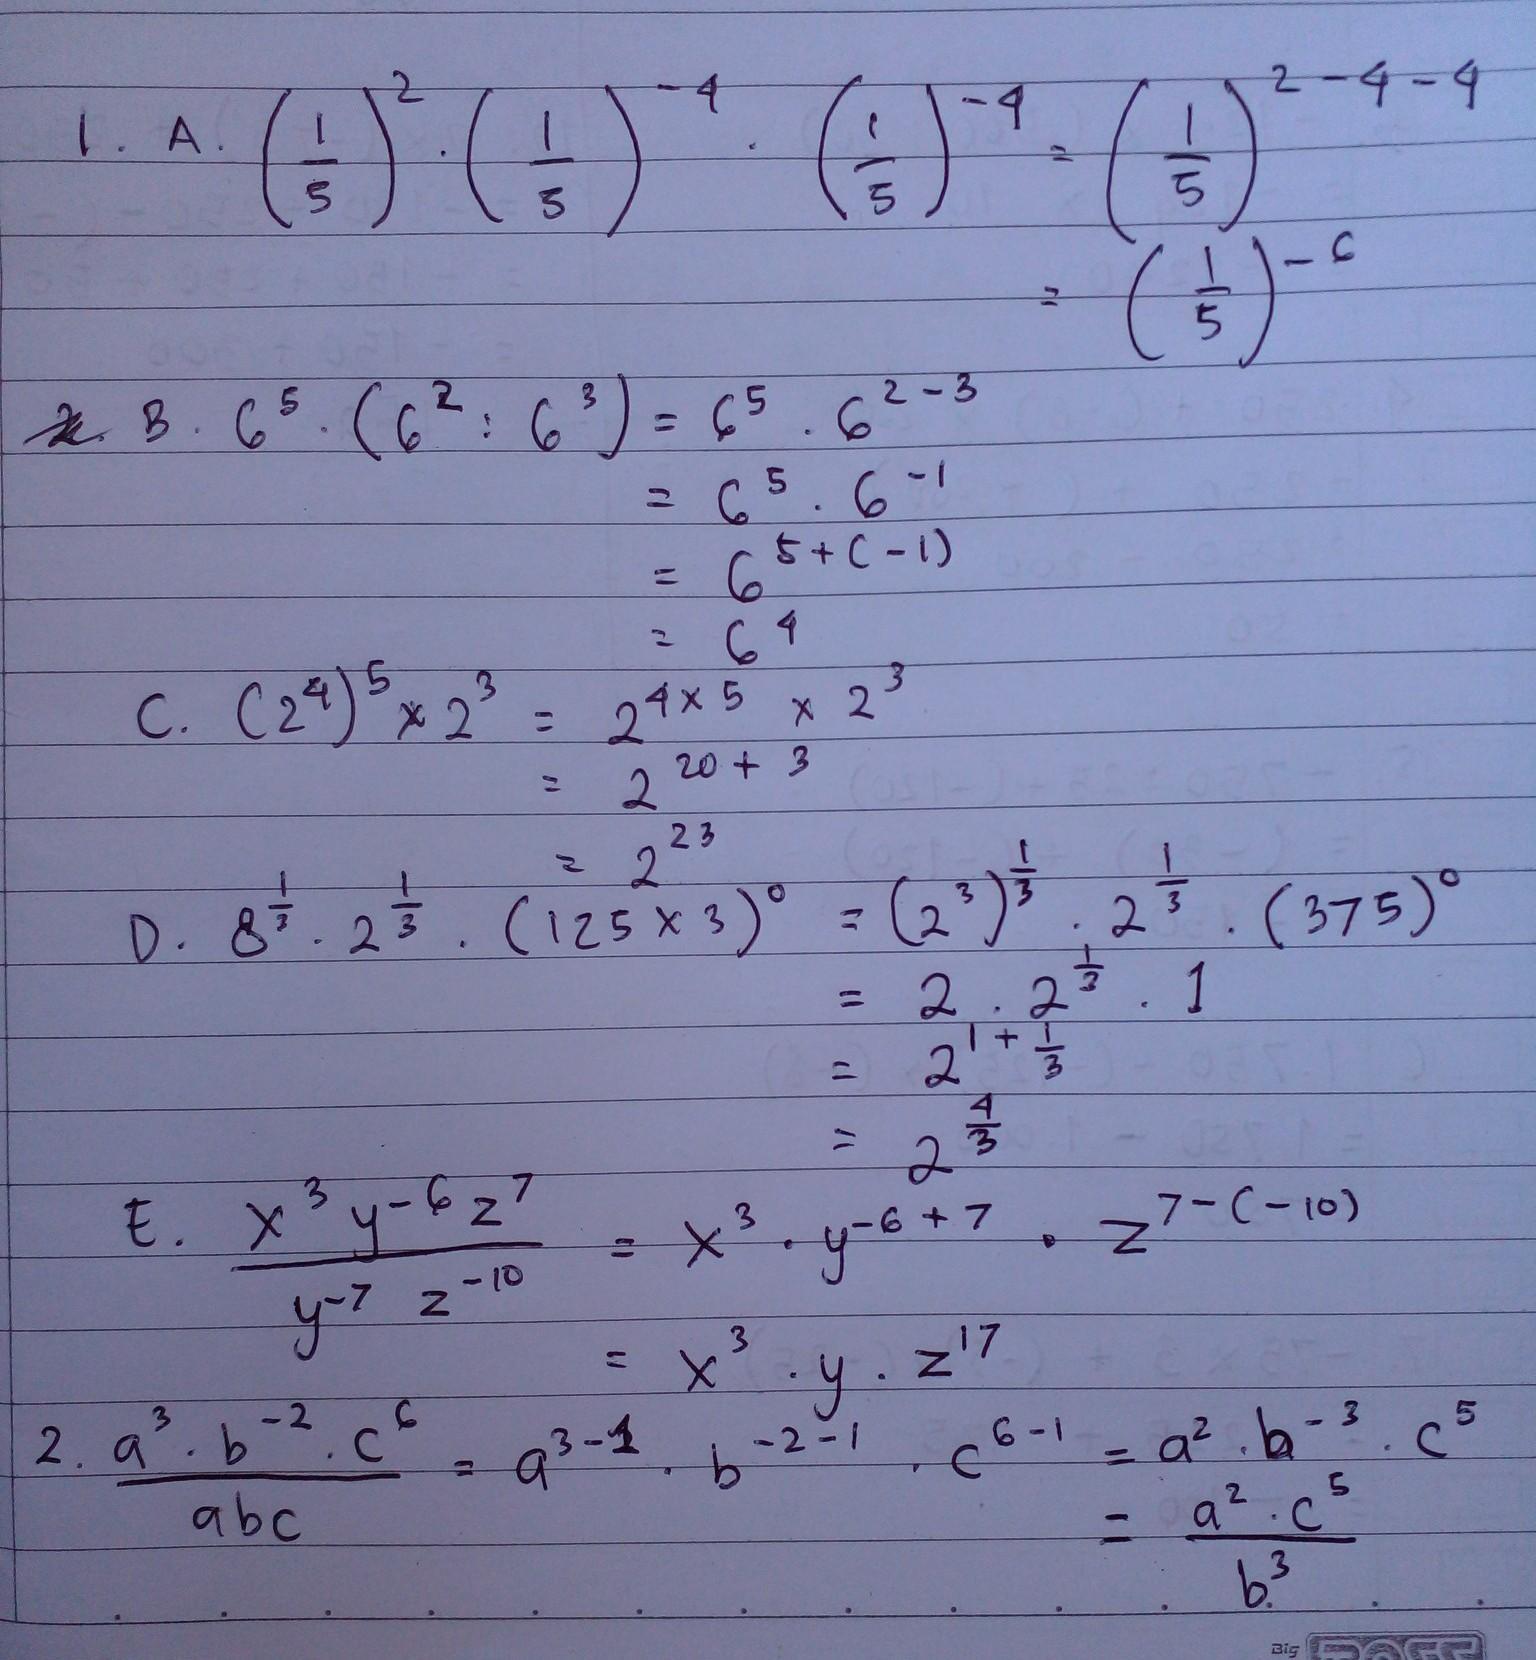 1. A. (1/5)² · (1/5)⁻⁴ · (1/5)⁻⁴ = (1/5)²⁻⁴⁻⁴
= (1/5)⁻⁶
B. 6⁵ · (6² : 6³) = 6⁵ · 6²⁻³
= 6⁵ · 6⁻¹
= 6⁵⁺⁽⁻¹⁾
= 6⁴
C. (2⁴)⁵ × 2³ = 2^(4×5) × 2³
= 2²⁰⁺³
= 2²³
D. 8^(1/3) · 2^(1/3) · (125 × 3)⁰ = (2³)^(1/3) · 2^(1/3) · (375)⁰
= 2 · 2^(1/3) · 1
= 2^(1+1/3)
= 2^(4/3)
E. x³ y⁻⁶ z⁷ / y⁻⁷ z⁻¹⁰ = x³ · y⁻⁶⁺⁷ · z⁷⁻⁽⁻¹⁰⁾
= x³ · y · z¹⁷
2. a³ · b⁻² · c⁶ / abc = a³⁻¹ · b⁻²⁻¹ · c⁶⁻¹ = a² · b⁻³ · c⁵
= a² · c⁵ / b³
Big BOSS